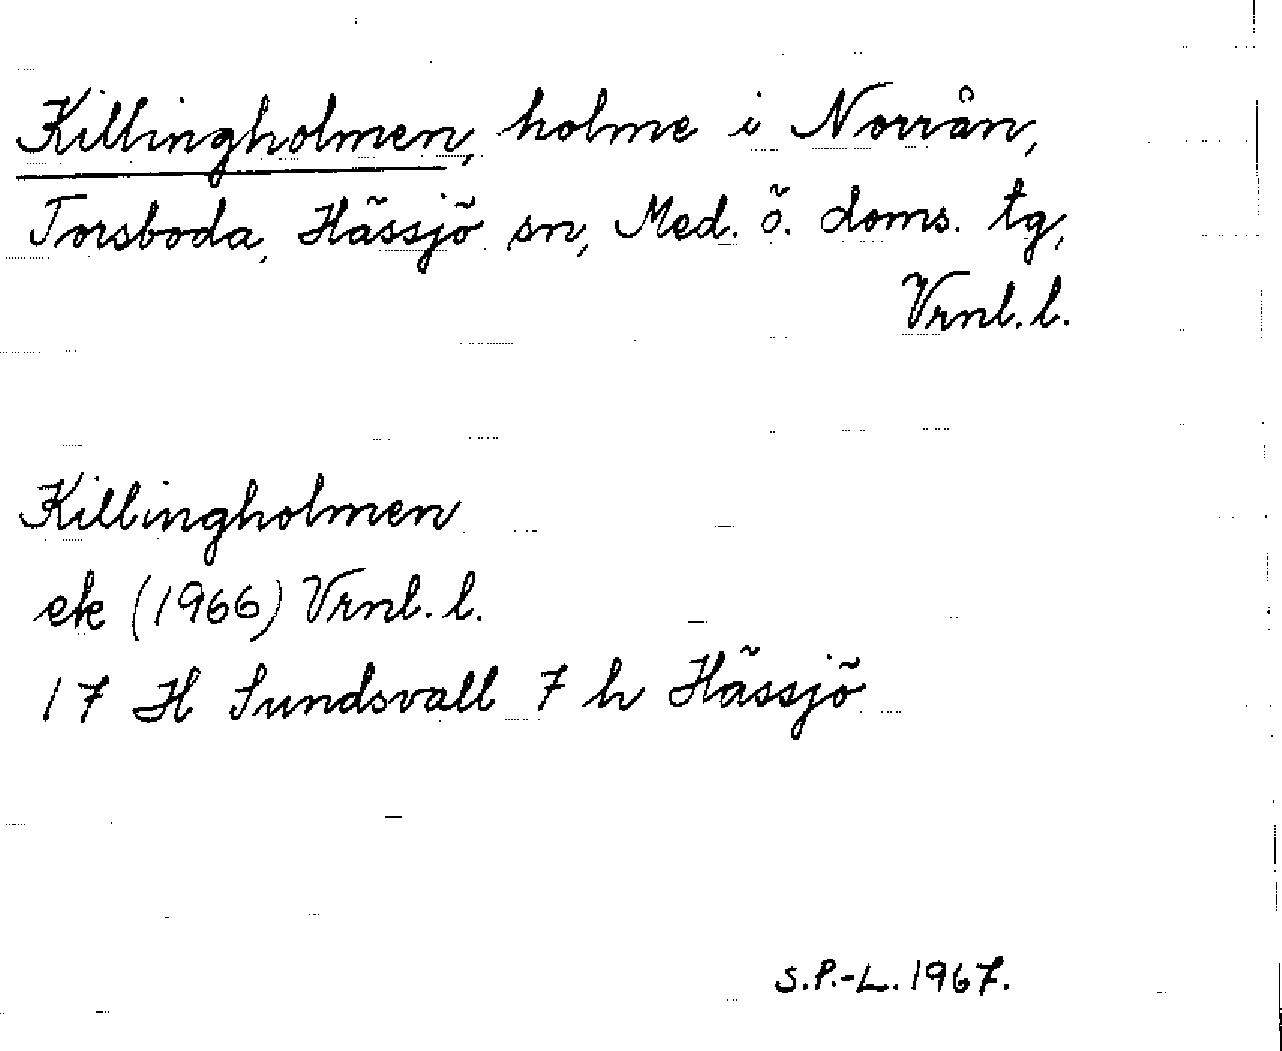 Killingholmen, holme i Norrån,
Torsboda, Hässjö sn, Med. ö. doms. tg,
Vrnl. l.
Killingholmen
ek (1966) Vrnl. l.
17 H Sundsvall 7 h Hässjö
S.P.-L. 1967.